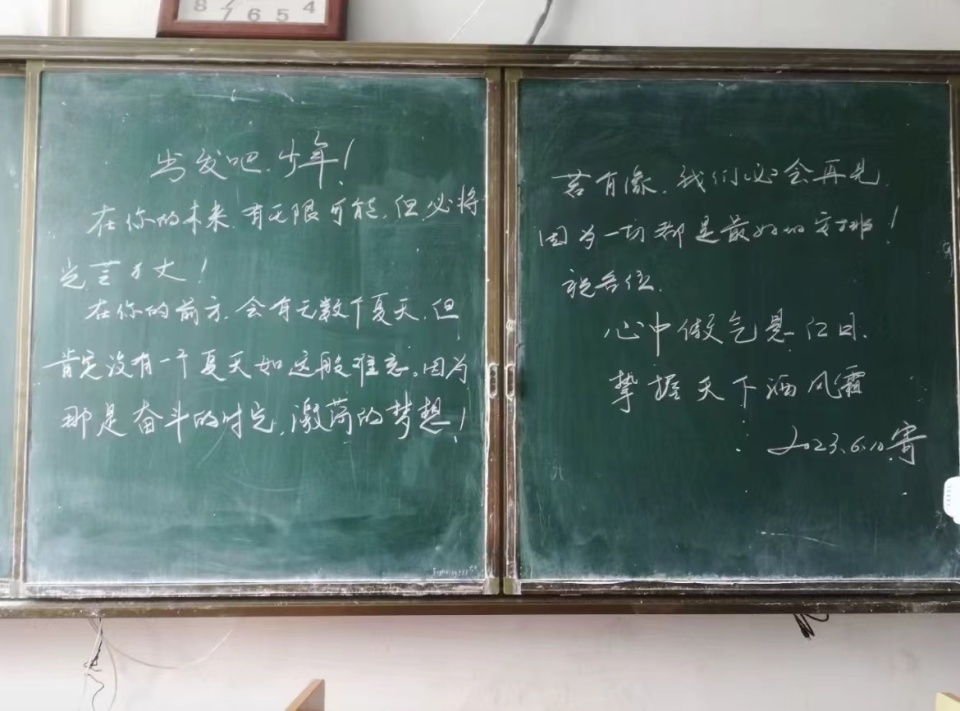 8 7 6 5 4
出发吧.少年!
在你的未来.有无限可能.但必将
光芒万丈!
在你的前方.会有无数个夏天.但
肯定没有一个夏天如这般难忘.因为
那是奋斗的时光.激荡的梦想!
若有缘.我们必会再见.
因为一切都是最好的安排!
祝各位.
心中做气悬江日.
掌握天下洒风霜
2023.6.10.寄